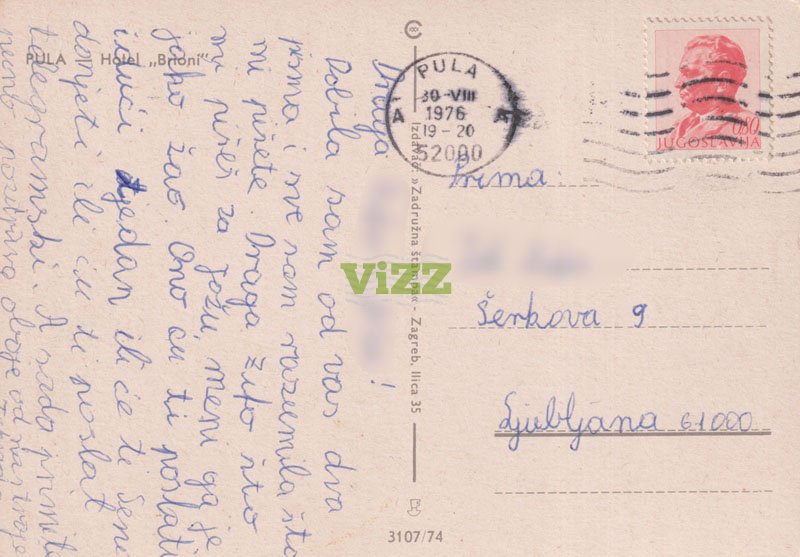 PULA Hotel „Brioni"
Draga !
Dobila sam od vas dva
pisma i sve sam razumila što
mi pišete. Draga što
mi pišeš za Jožu, meni ga je
jako žao. Ono ću ti poslati
idući tjedan ili će ti
donjeti ili ću ti poslat
telegramski. A sada primite
puno pozdrava oboje od nas troje
Izdavač: »Zadružna štampa« - Zagreb, Ilica 35
3107/74
PULA
30-VIII
1976
19-20
A A
52000
0.80
JUGOSLAVIJA
Prima
Šerkova 9
Ljubljana 61000
ViZZ